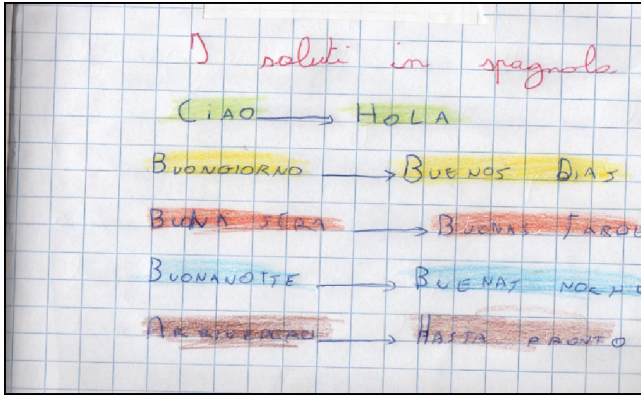 I saluti in spagnolo
CIAO → HOLA
BUONGIORNO → BUENOS DIAS
BUONA SERA → BUENAS TARDE
BUONANOTTE → BUENAS NOCHE
ARRIVEDERCI → HASTA PRONTO